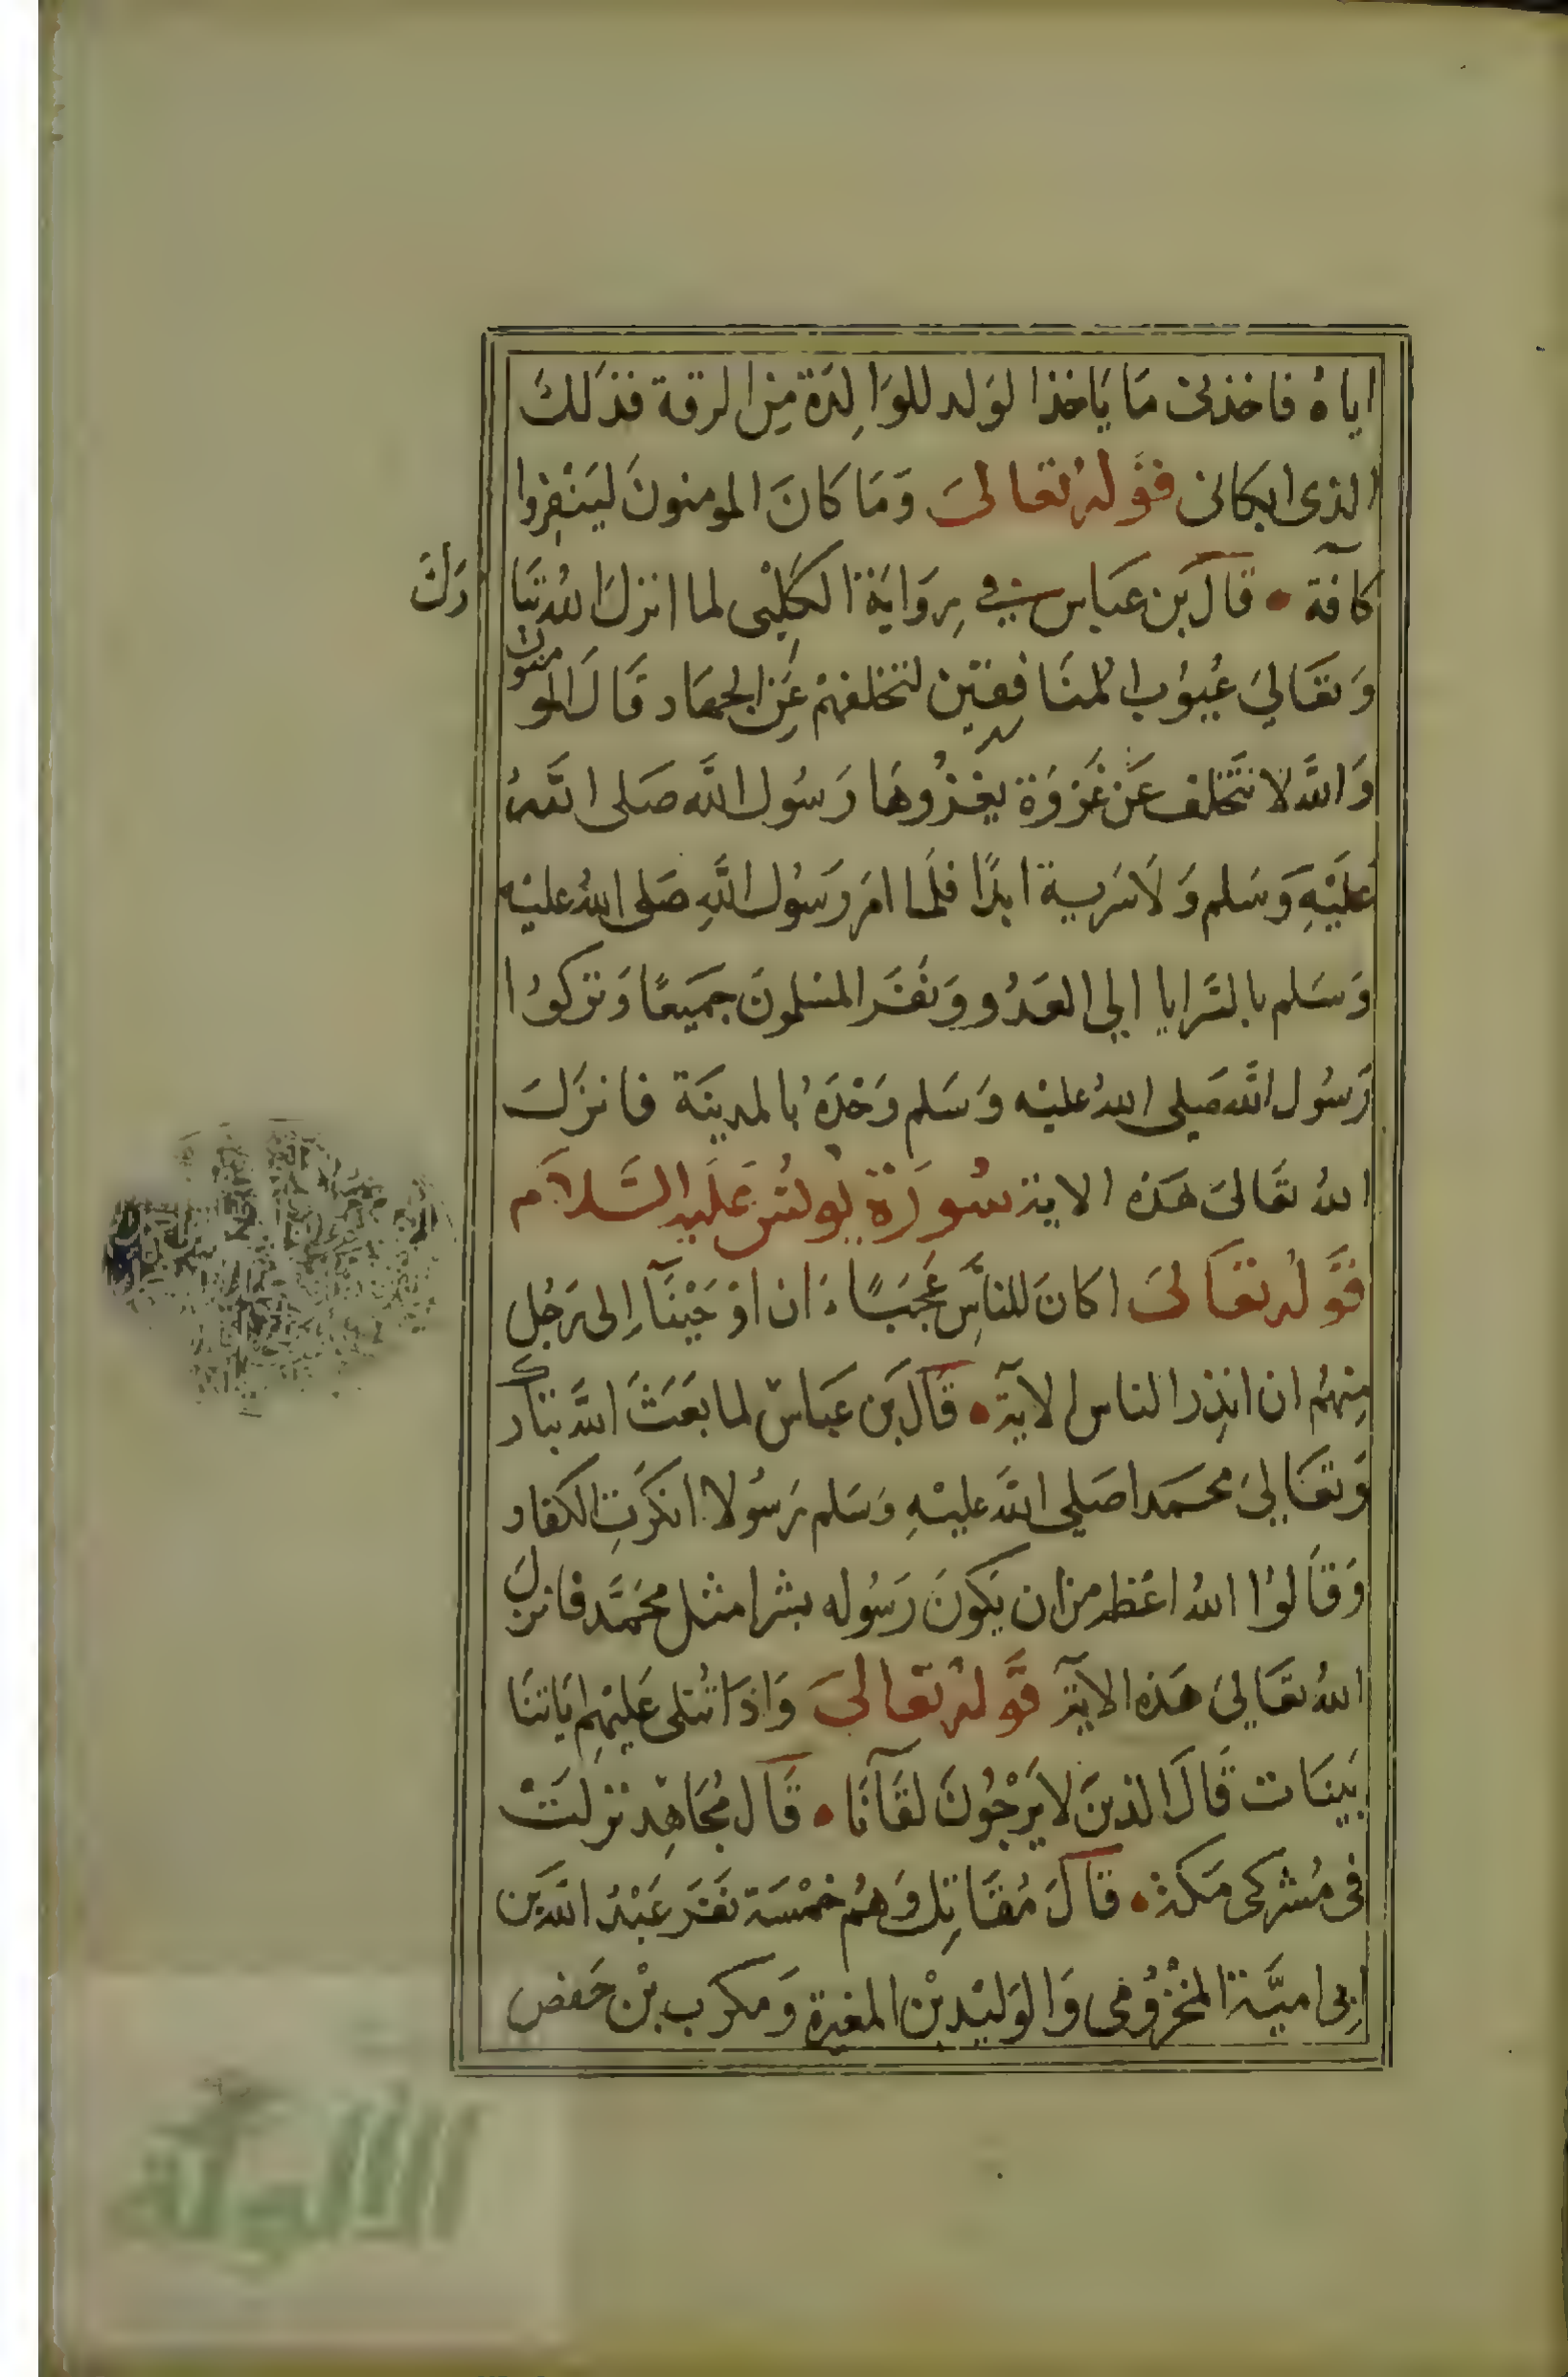 اياهُ فاخذنى مَا يَاخذ الوَلد للوَالِدَة مِن الرقة فذَلكَ
الذى ابكانى قَوْلهُ تعَالىَ وَمَا كانَ المومنونَ ليَنْفِرُوا
كآفة • قَالَ بن عَباس فِي رِوَايَة الكَلبْى لما انزلَ اللهُ تبَا رَكَ
وَتعَاليَ عُيوُب المنَافِقيْن لتخلفهمْ عَنِ الجهَاد قَالَ المومنون
وَاللهِ لا نتَخلف عَنْ غَزْوَة يغزُوهَا رَسُول الله صَلى اللهُ
عَليْهِ وَسَلم وَلَا سَرية ابدًا فلَما امَر رَسُول اللهِ صَلى اللهُ عليْه
وَسَلم بالسَّرايا الي العَدُو وَنفَرَ المسْلمونَ جميَعًا وَتركوُا
رَسُول الله صَلي اللهُ عليْه وَسَلم وَحْدَهُ بالمدينَة فانزَلَ
اللهُ تعَالىَ هَذه الاية سُورَة يُونسُ عَليه السَّلاَم
قَوْلهُ تعَالىَ اكانَ للناسِ عَجَبًا ان اوْحَيْنَا إِلى رَجُل
مِنهمُ ان انذِر الناس الاية • قَالَ بن عَباسْ لما بَعَثَ اللهَ تبَارك
وَتعَاليَ محمَدا صَلي اللهَ عليْهِ وَسَلم رَسُولا انكرَتِ الكفار
وَقَالوُا اللهُ اعْظم من ان يَكونَ رَسُوله بشرا مثل محَمَّد فانزلَ
اللهُ تعَاليَ هَذه الاية قَوْلهُ تعَالىَ وَاذَا تُتلى عَليْهِم ايَاتنَا
بَينَات قَالَ الذينَ لا يَرْجُونَ لقَآنَا • قَال مُجَاهِد نزلتْ
فى مُشركى مَكة • قالَ مُقَاتِل وَهُم خمْسَة نفَر عَبْدُ الله بَن
اِبى اميَّة المخْزُومى وَالوَليْد بْن المغيرة وَمكرب بْن حَفص
الألوكة